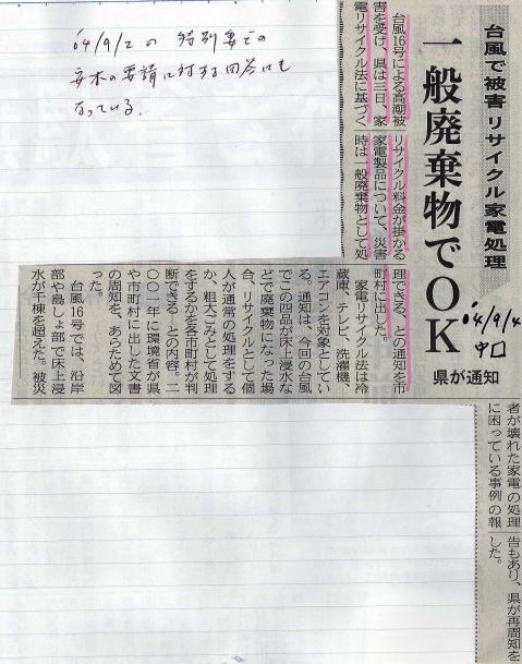 '04/9/2の特別委での
安木の要請に対する回答にも
なっている。
台風で被害 リサイクル家電処理
一般廃棄物でOK
県が通知
'04/9/4
中口
台風16号による高潮被
害を受け、県は三日、家
電リサイクル法に基づく
リサイクル料金が掛かる
家電製品について、災害
時は一般廃棄物として処
理できる、との通知を市
町村に出した。
家電リサイクル法は冷
蔵庫、テレビ、洗濯機、
エアコンを対象としてい
る。通知は、今回の台風
でこの四品が床上浸水な
どで廃棄物になった場
合、リサイクルとして個
人が通常の処理をする
か、粗大ごみとして処理
をするかを各市町村が判
断できる、との内容。二
〇〇一年に環境省が県
や市町村に出した文書
の周知を、あらためて図
った。
台風16号では、沿岸
部や島しょ部で床上浸
水が千棟を超えた。被災
者が壊れた家電の処理
に困っている事例の報
告もあり、県が再周知を
した。